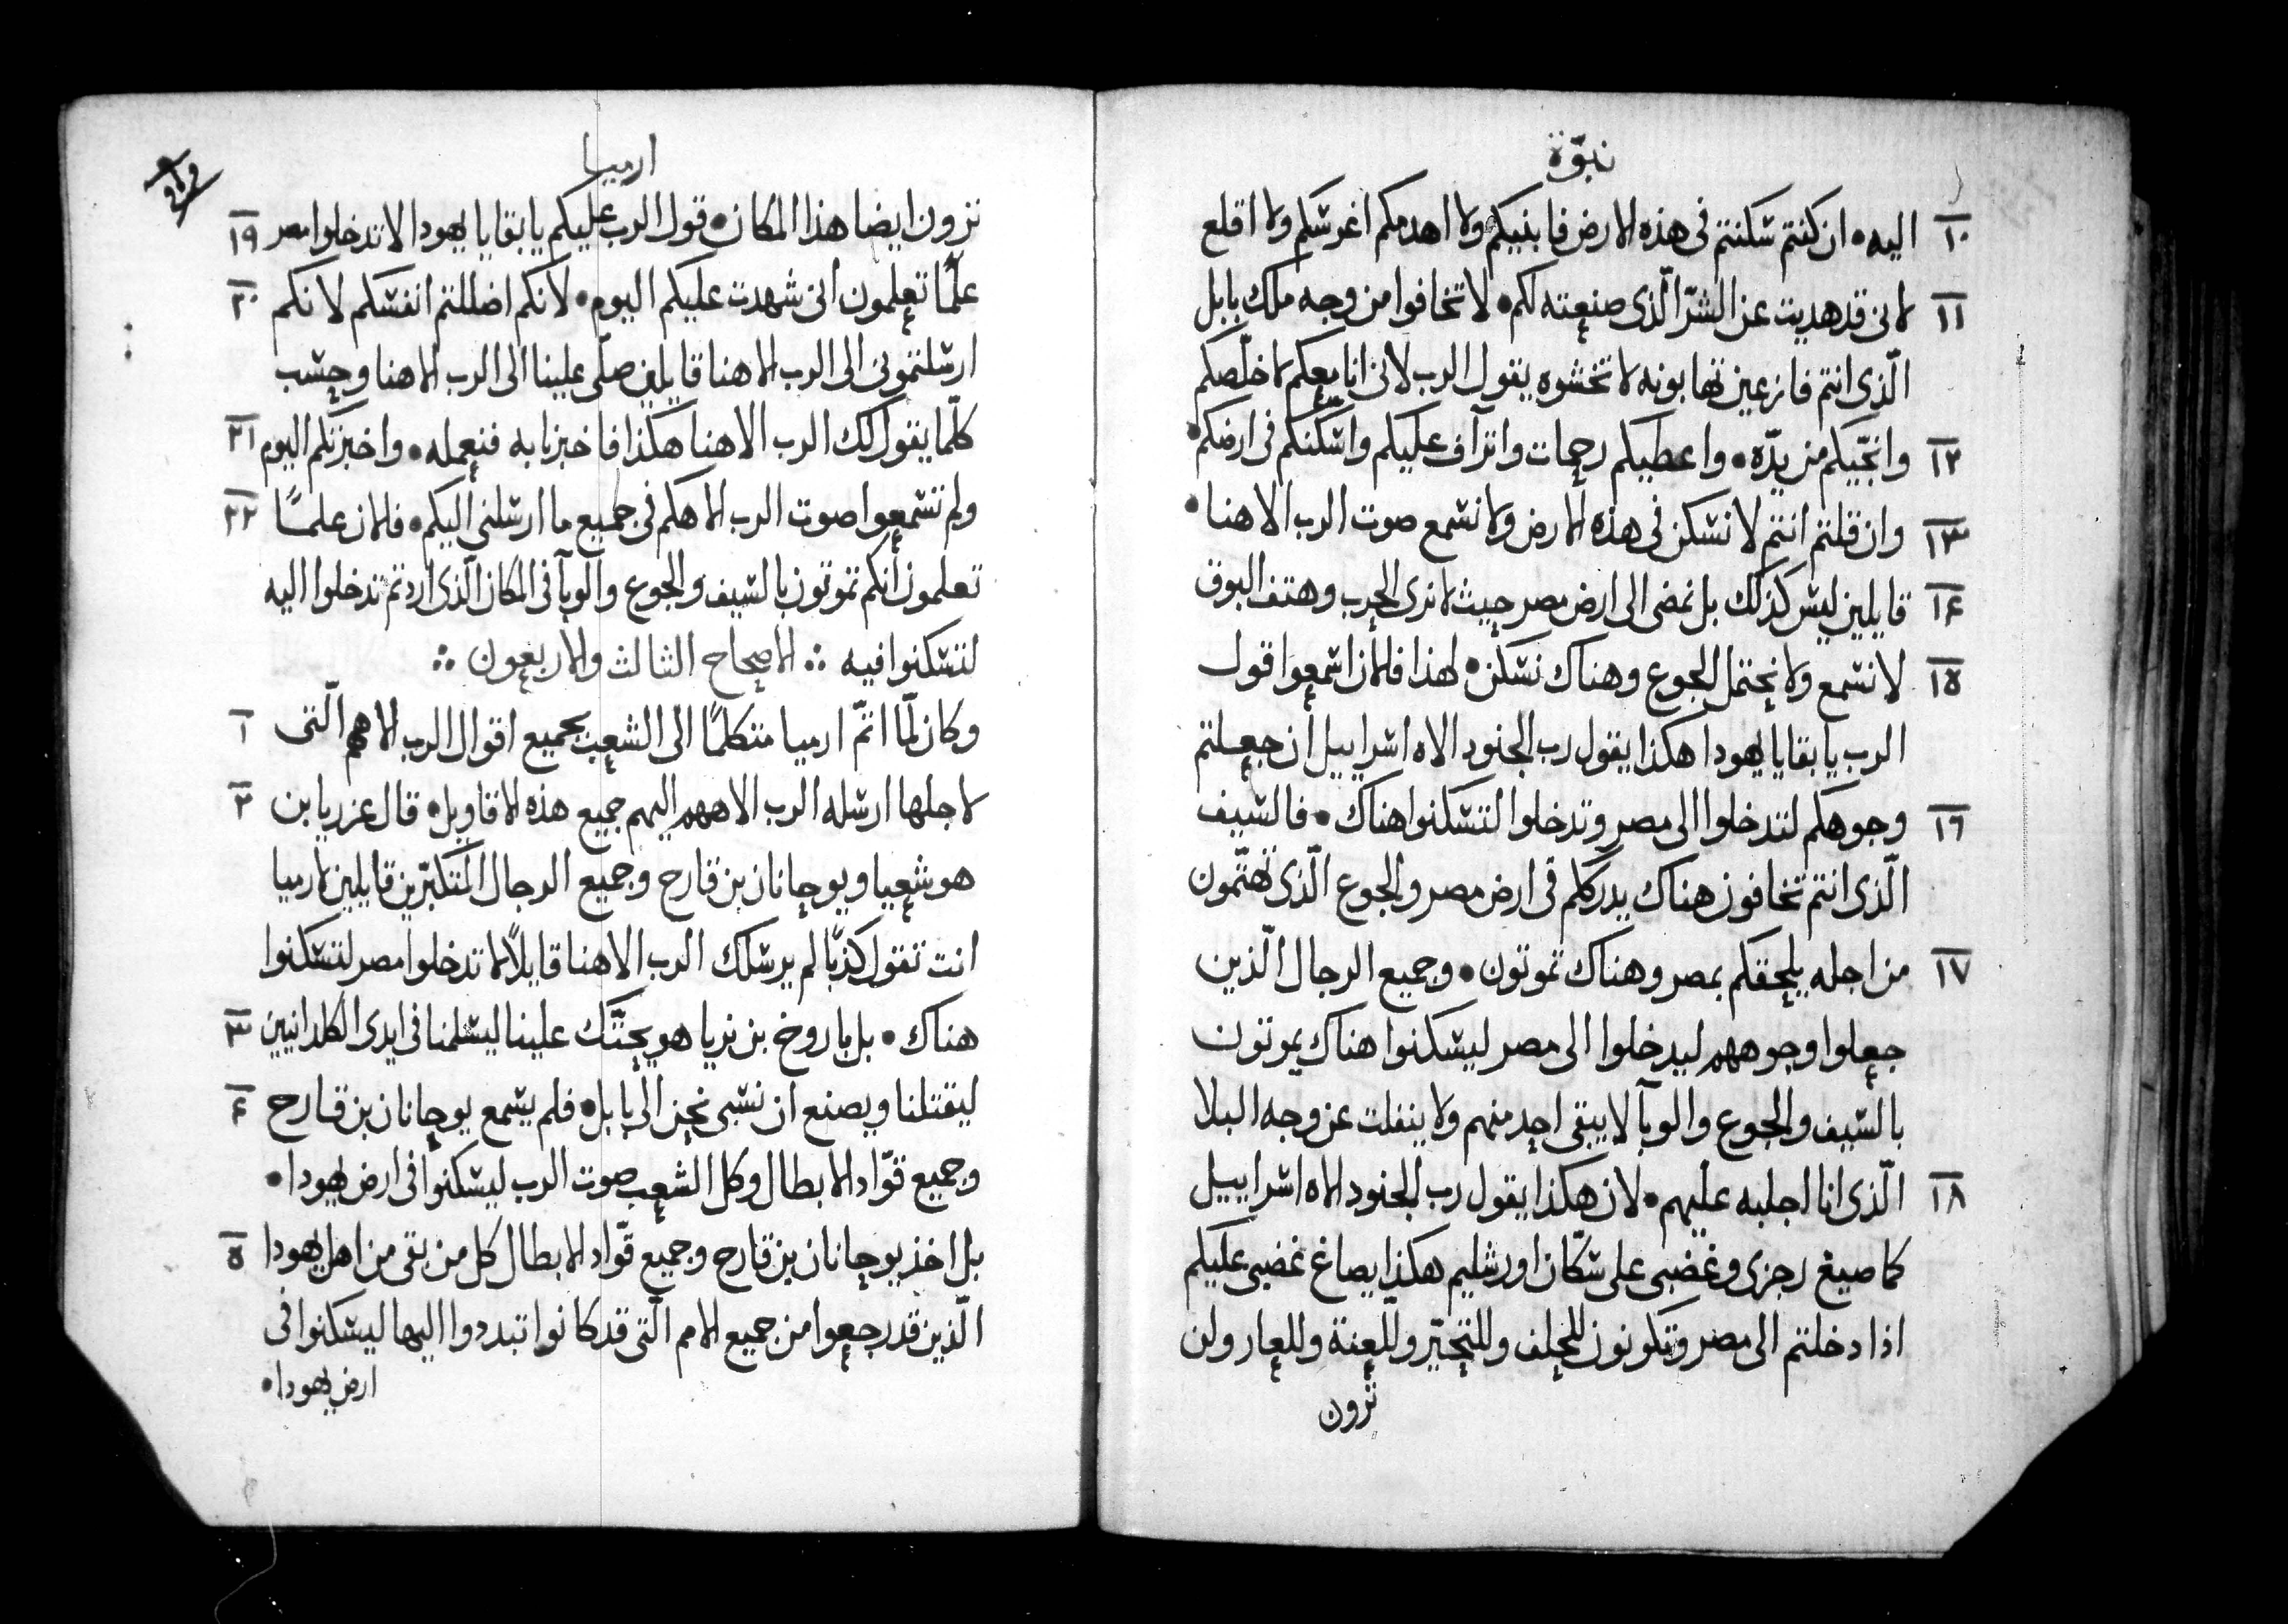 نبوّة
١٠ اليه • ان كنتم سكنتم فى هذه الارض فابنيكم ولا اهدمكم اغرسكم ولا اقلع
١١ لانى قد هديت عن الشرّ الّذى صنعته لكم • لا تخافوا من وجه ملك بابل
الّذى انتم فازعين تهابونه لا تخشوه يقول الرب لانى انا معكم لاخلّصكم
١٢ وانجّيكم من يدّه • واعطيكم رحمات واترآف عليكم واسكنكم فى ارضكم •
١٣ وان قلتم انتم لا نسكن فى هذه الارض ولا نسمع صوت الرب الاهنا •
١٤ قايلين ليس كذلك بل نمضى الى ارض مصر حيث لا نرى الحرب وهتف البوق
١٥ لا نسمع ولا نحتمل الجوع وهناك نسكن • لهذا فالان اسمعوا قول
الرب يا بقايا يهودا هكذا يقول رب الجنود الاه اسراييل ان جعلتم
١٦ وجوهكم لتدخلوا الى مصر وتدخلوا لتسكنوا هناك • فالسيف
الّذى انتم تخافون هناك يدرككم فى ارض مصر والجوع الّذى تهتّمون
١٧ من اجله يلحقكم بمصر وهناك تموتون • وجميع الرجال الّذين
جعلوا وجوههم ليدخلوا الى مصر ليسكنوا هناك يموتون
بالسيف والجوع والوبآ لا يبقى احد منهم ولا ينفلت عن وجه البلا
١٨ الّذى انا اجلبه عليهم • لان هكذا يقول رب الجنود الاه اسراييل
كما صيغ رجزى وغضبى على سكّان اورشليم هكذا يصاغ غضبى عليكم
اذا دخلتم الى مصر وتكونون للحلف وللتحيّر وللّعنة وللعار ولن
ترون
ارميا
ترون ايضا هذا المكان • قول الرب عليكم يا بقايا يهودا لا تدخلوا مصر ١٩
علمًا تعلمون انى شهدت عليكم اليوم • لانكم اضللتم انفسكم لانكم ٢٠
ارسلتمونى الى الرب الاهنا قايلين صلّى علينا الى الرب الاهنا وحسب
كلّما يقول لك الرب الاهنا هكذا فاخبرنا به فنعمله • واخبرتكم اليوم ٢١
ولم تسمعوا صوت الرب الاهكم فى جميع ما ارسلنى اليكم • فالان علمًا ٢٢
تعلمون انكم تموتون بالسيف والجوع والوبآ فى المكان الّذى اردتم تدخلوا اليه
لتسكنوا فيه ∴ الاصحاح الثالث والاربعون ∴
وكان لمّا اتمّ ارميا متكلمًا الى الشعب بجميع اقوال الرب الاههم الّتى ١
لاجلها ارسله الرب الاههم اليهم جميع هذه الاقاويل • قال عزريا بن ٢
هوشعيا ويوحانان بن قارح وجميع الرجال المتكبّرين قايلين لارميا
انت تقول كذبًا لم يرسلك الرب الاهنا قايلاً لا تدخلوا مصر لتسكنوا
هناك • بل باروخ بن نريا هو يحتّك علينا ليسلمنا فى ايدى الكلدانيين ٣
ليقتلنا ويصنع ان نسبى نحن الى بابل • فلم يسمع يوحانان بن قارح ٤
وجميع قوّاد الابطال وكل الشعب صوت الرب ليسكنوا فى ارض يهودا •
بل اخذ يوحانان بن قارح وجميع قوّاد الابطال كل من بقى من اهل يهودا ٥
الّذين قد رجعوا من جميع الامم الّتى قد كانوا تبددوا اليها ليسكنوا فى
ارض يهودا •